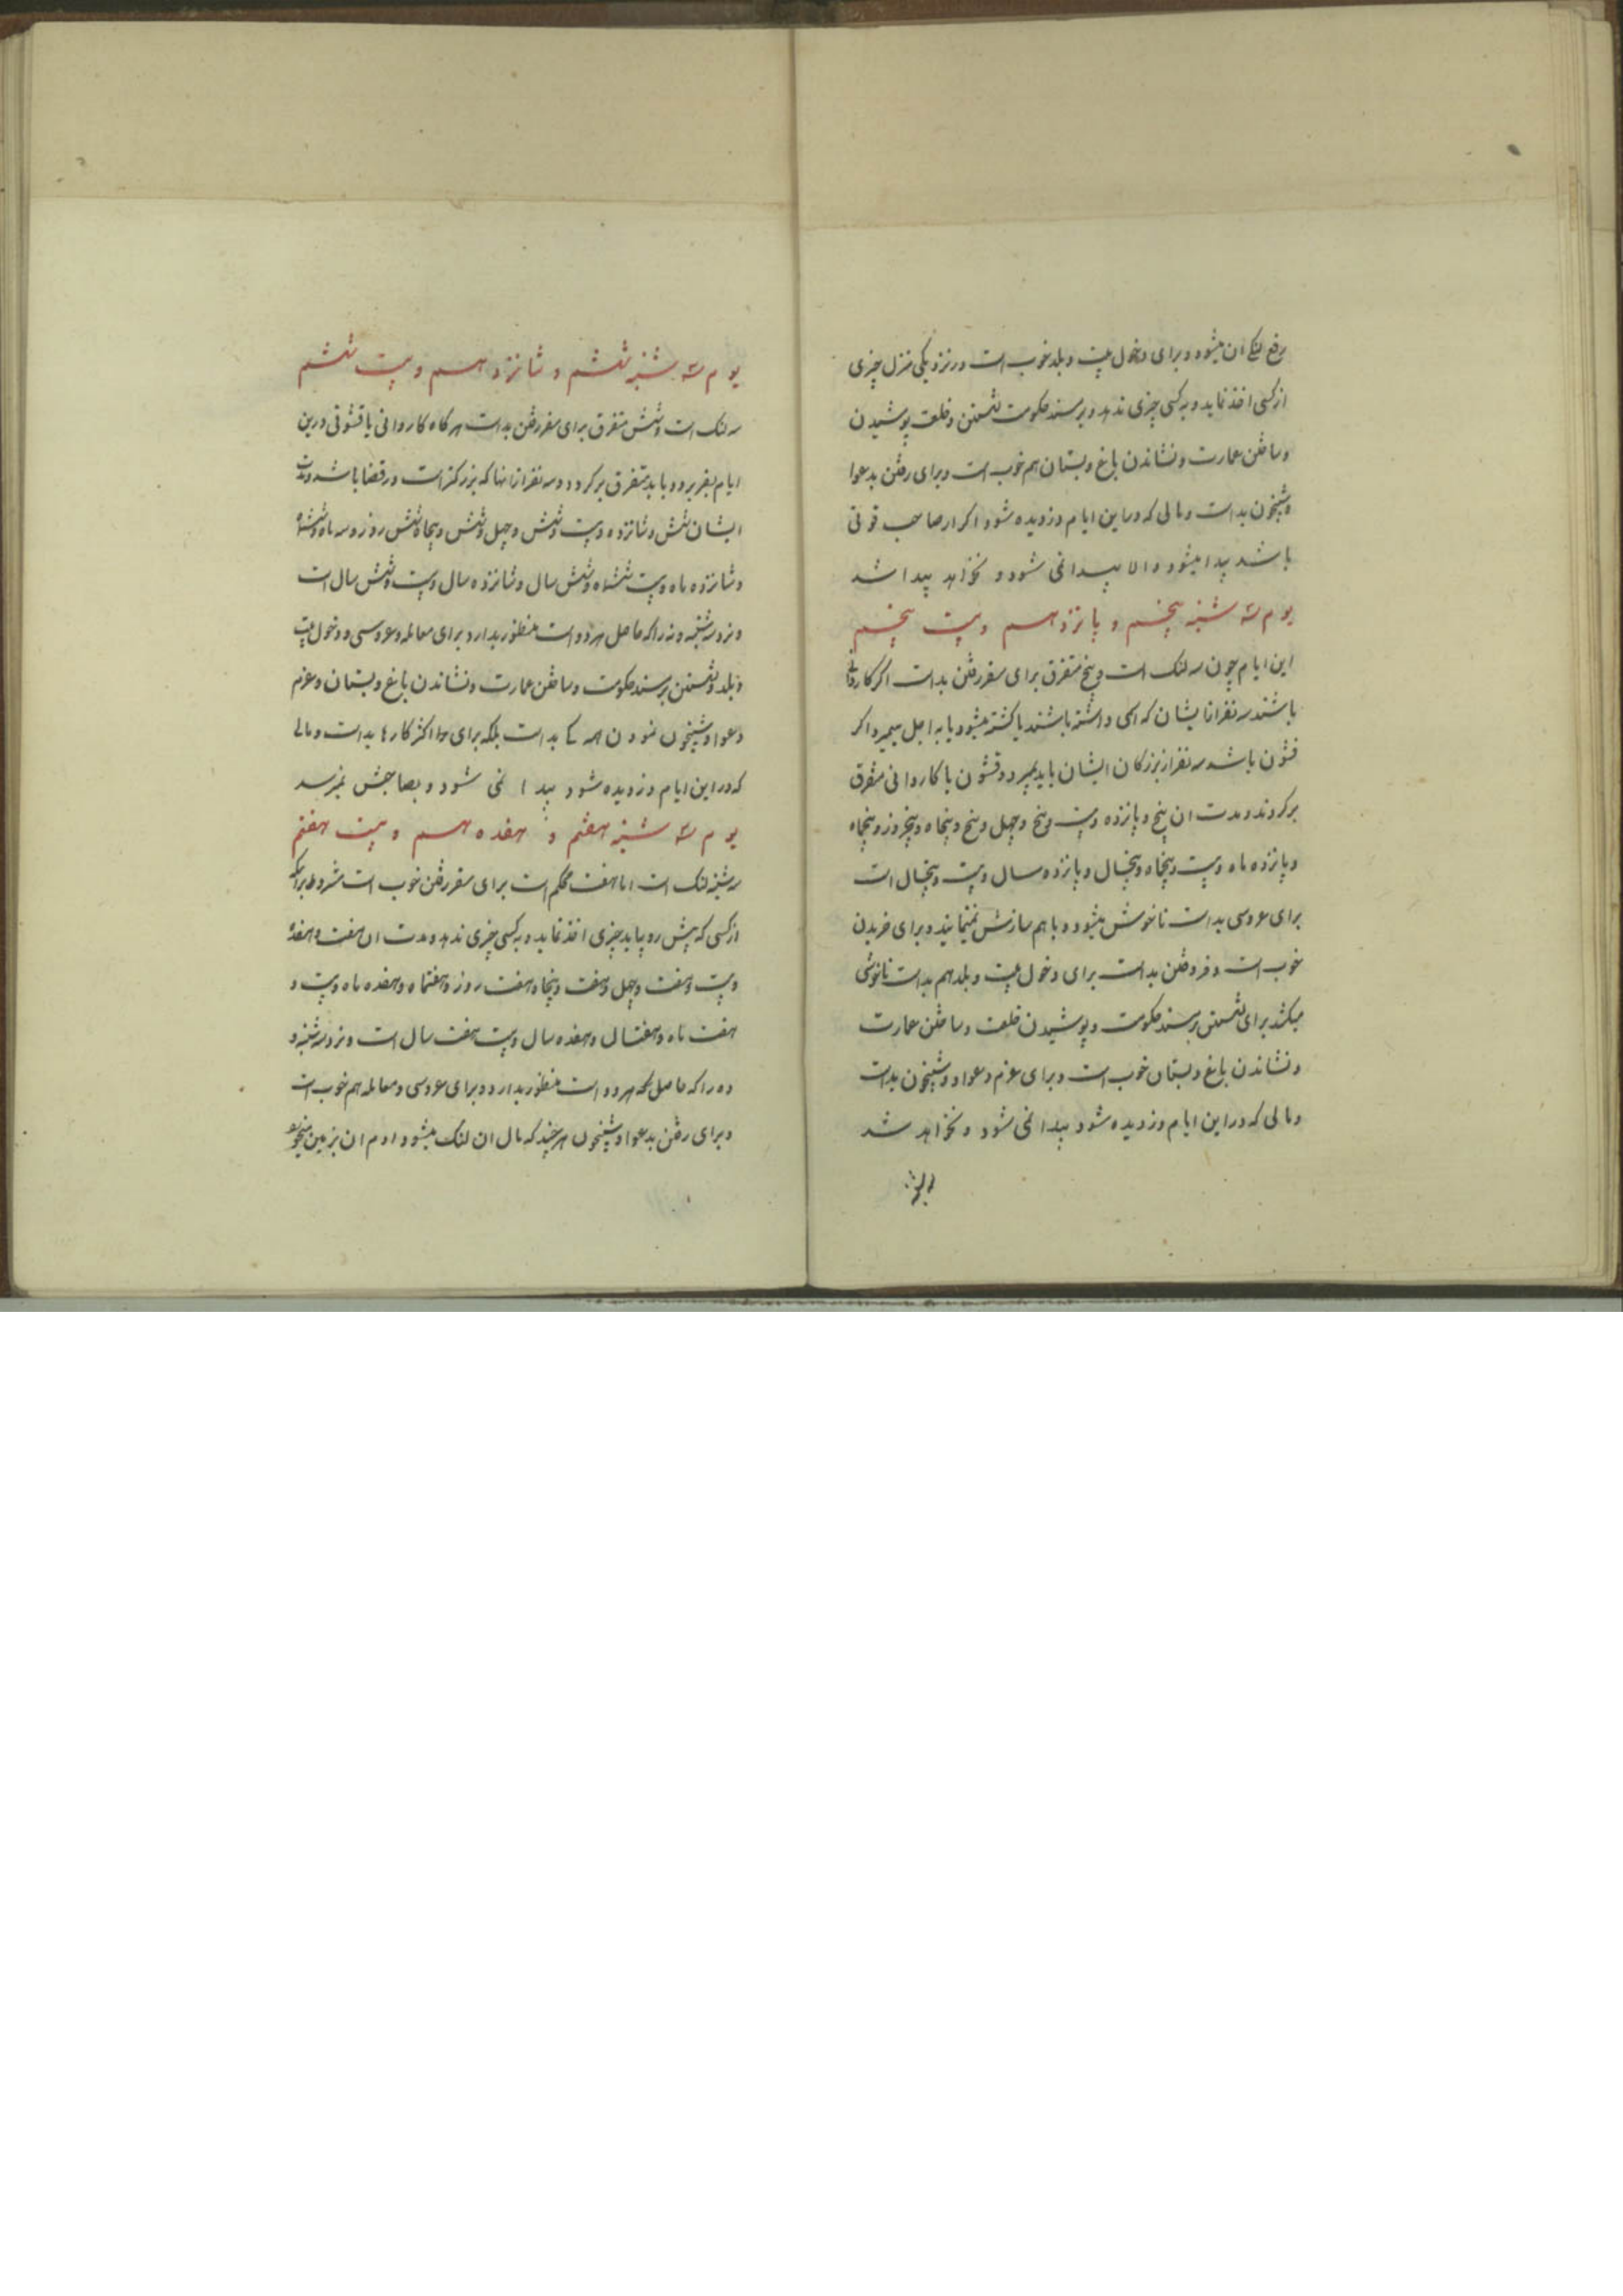 رفع لنگی ان میشود و برای دخول بیت و بلد خوب است و در نزدیکی منزل چیزی
از کسی اخذ نماید و به کسی چیزی ندهد و بر مسند حکومت نشستن و خلعت پوشیدن
و ساختن عمارت و نشاندن باغ و بستان هم خوب است و برای رفتن بدعوا
و شبیخون بد است و مالی که در این ایام دزدیده شود اگر از صاحب قوتی
باشد پیدا میشود و الا پیدا نمی شود و نخواهد پیدا شد
یوم سه شنبه پنجم و پانزدهم و بیست پنجم
این ایام چون سه لنک است و پنج متفرق برای سفر رفتن بد است اگر کاروانی
باشند سه نفر از ایشان که اکی داشته باشند یا کشته میشود یا به اجل میمیرد اگر
قشون باشد سه نفر از بزرکان ایشان باید بمیرد و قشون یا کاروانی متفرق
برکردند و مدت ان پنج و پانزده و بیست و پنج و چهل و پنج و پنجاه و پنجروز و پنجماه
و پانزده ماه و بیست و پنجماه و پنجسال و پانزده سال و بیست و پنجسال است
برای عروسی بد است ناخوش میشود و با هم سازش نمینمایند و برای خریدن
خوب است و فروختن بد است برای دخول بیت و بلد هم بد است ناخوشی
میکشد برای نشستن بر مسند حکومت و پوشیدن خلعت و ساختن عمارت
و نشاندن باغ و بستان خوب است و برای عزم دعوا و شبیخون بد است
و مالی که در این ایام دزدیده شود پیدا نمی شود و نخواهد شد
یوم سه شنبه ششم و شانزدهم و بیست ششم
سه لنک است و شش متفرق برای سفر رفتن بد است هر کاه کاروانی یا قشونی درین
ایام بسفر برود باید متفرق برکردد و سه نفر از انها که بزرکتر است در قضا باشد و مدت
ایشان شش و شانزده و بیست و شش و چهل و شش و پنجاه و شش روز و سه ماه و ششماه
و شانزده ماه و بیست ششماه و شش سال و شانزده سال و بیست و شش سال است
و نزد سه شنبه و نه را که حاصل هر دو است منظور بدارد برای معامله و عروسی و دخول بیت
و بلد و نشستن بر مسند حکومت و ساختن عمارت و نشاندن باغ و بستان و عزم
دعوا و شبیخون نمودن همکی بد است بلکه برای اکثر کارها بد است و مالی
که در این ایام دزدیده شود پیدا نمی شود و بصاحبش نمیرسد
یوم سه شنبه هفتم و هفدهم و بیست هفتم
سه شنبه لنک است اما هفت محکم است برای سفر رفتن خوب است مشروط بر انکه
از کسی که پیش رو بیاید چیزی اخذ نماید و به کسی چیزی ندهد و مدت ان هفت و هفده
و بیست و هفت و چهل و هفت و پنجاه و هفت روز و هفتماه و هفده ماه و بیست و
هفت ماه و هفتسال و هفده سال و بیست هفت سال است و نزد سه شنبه و
ده را که حاصل هر دو است منظور بدارد و برای عروسی و معامله هم خوب است
و برای رفتن بدعوا و شبیخون هر چند که مال ان لنک میشود و ادم ان بزمین میخورد